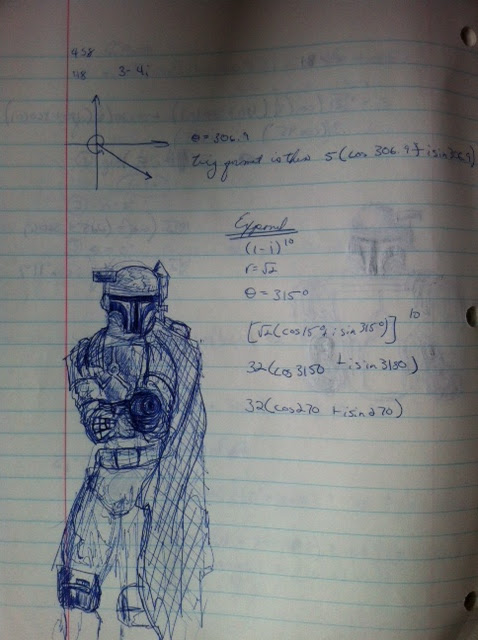 458
48 3-4i
θ = 306.9
trig format is thus 5(cos 306.9 + i sin 306.9)
Expand
(1-i)¹⁰
r=√2
θ = 315°
[√2(cos 315°, i sin 315°)]¹⁰
32(cos 3150 + i sin 3150)
32(cos 270 + i sin 270)